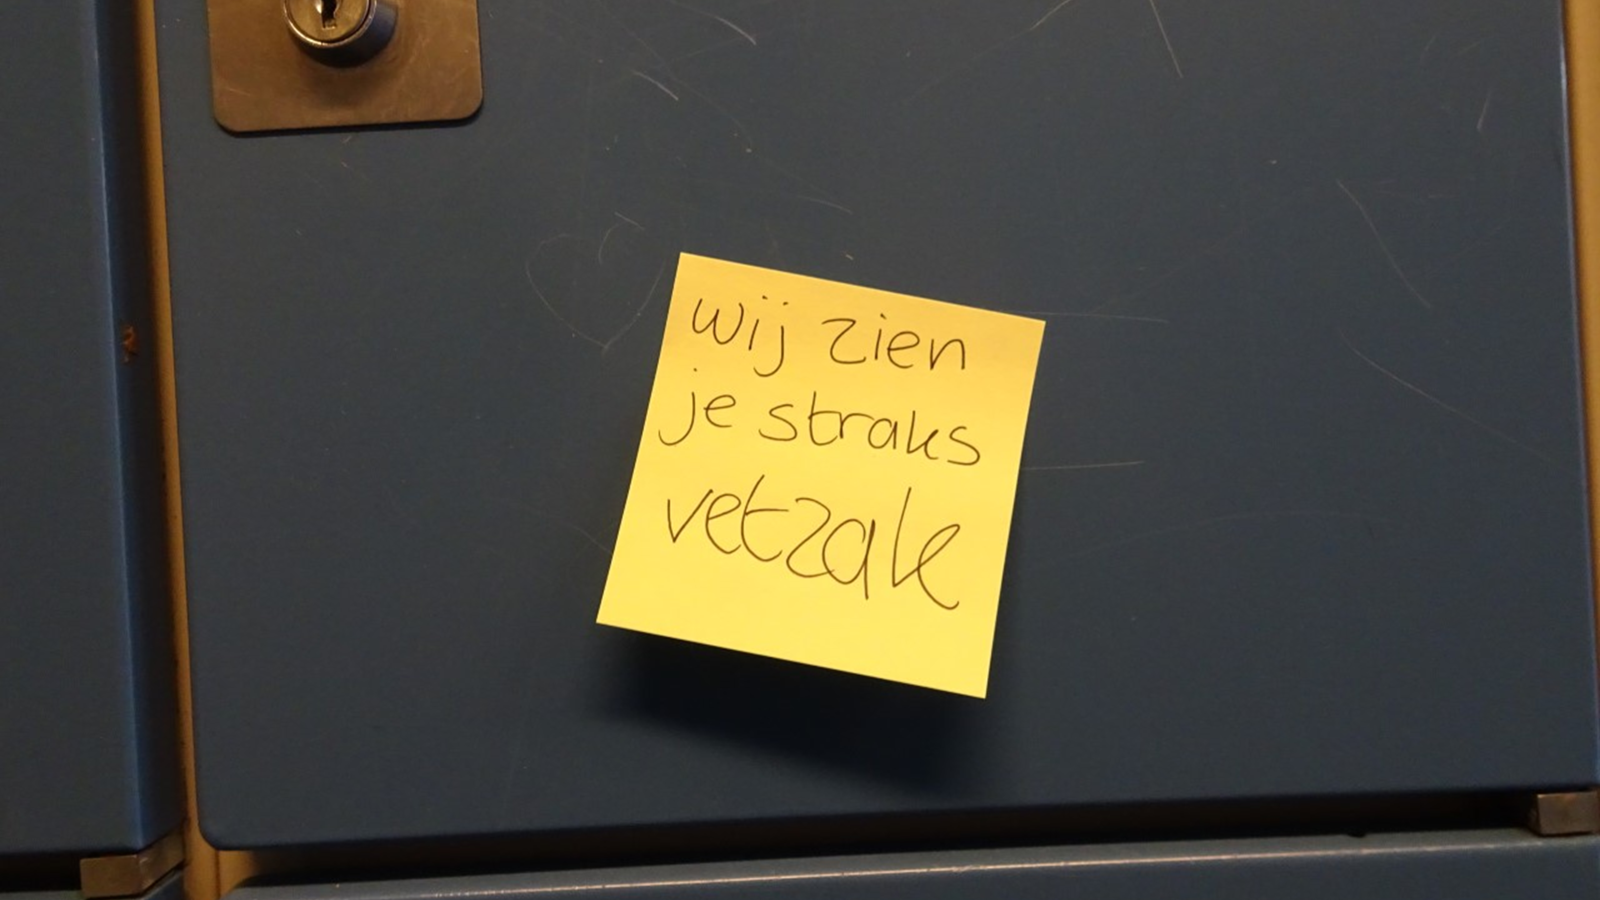 wij zien
je straks
vetzak